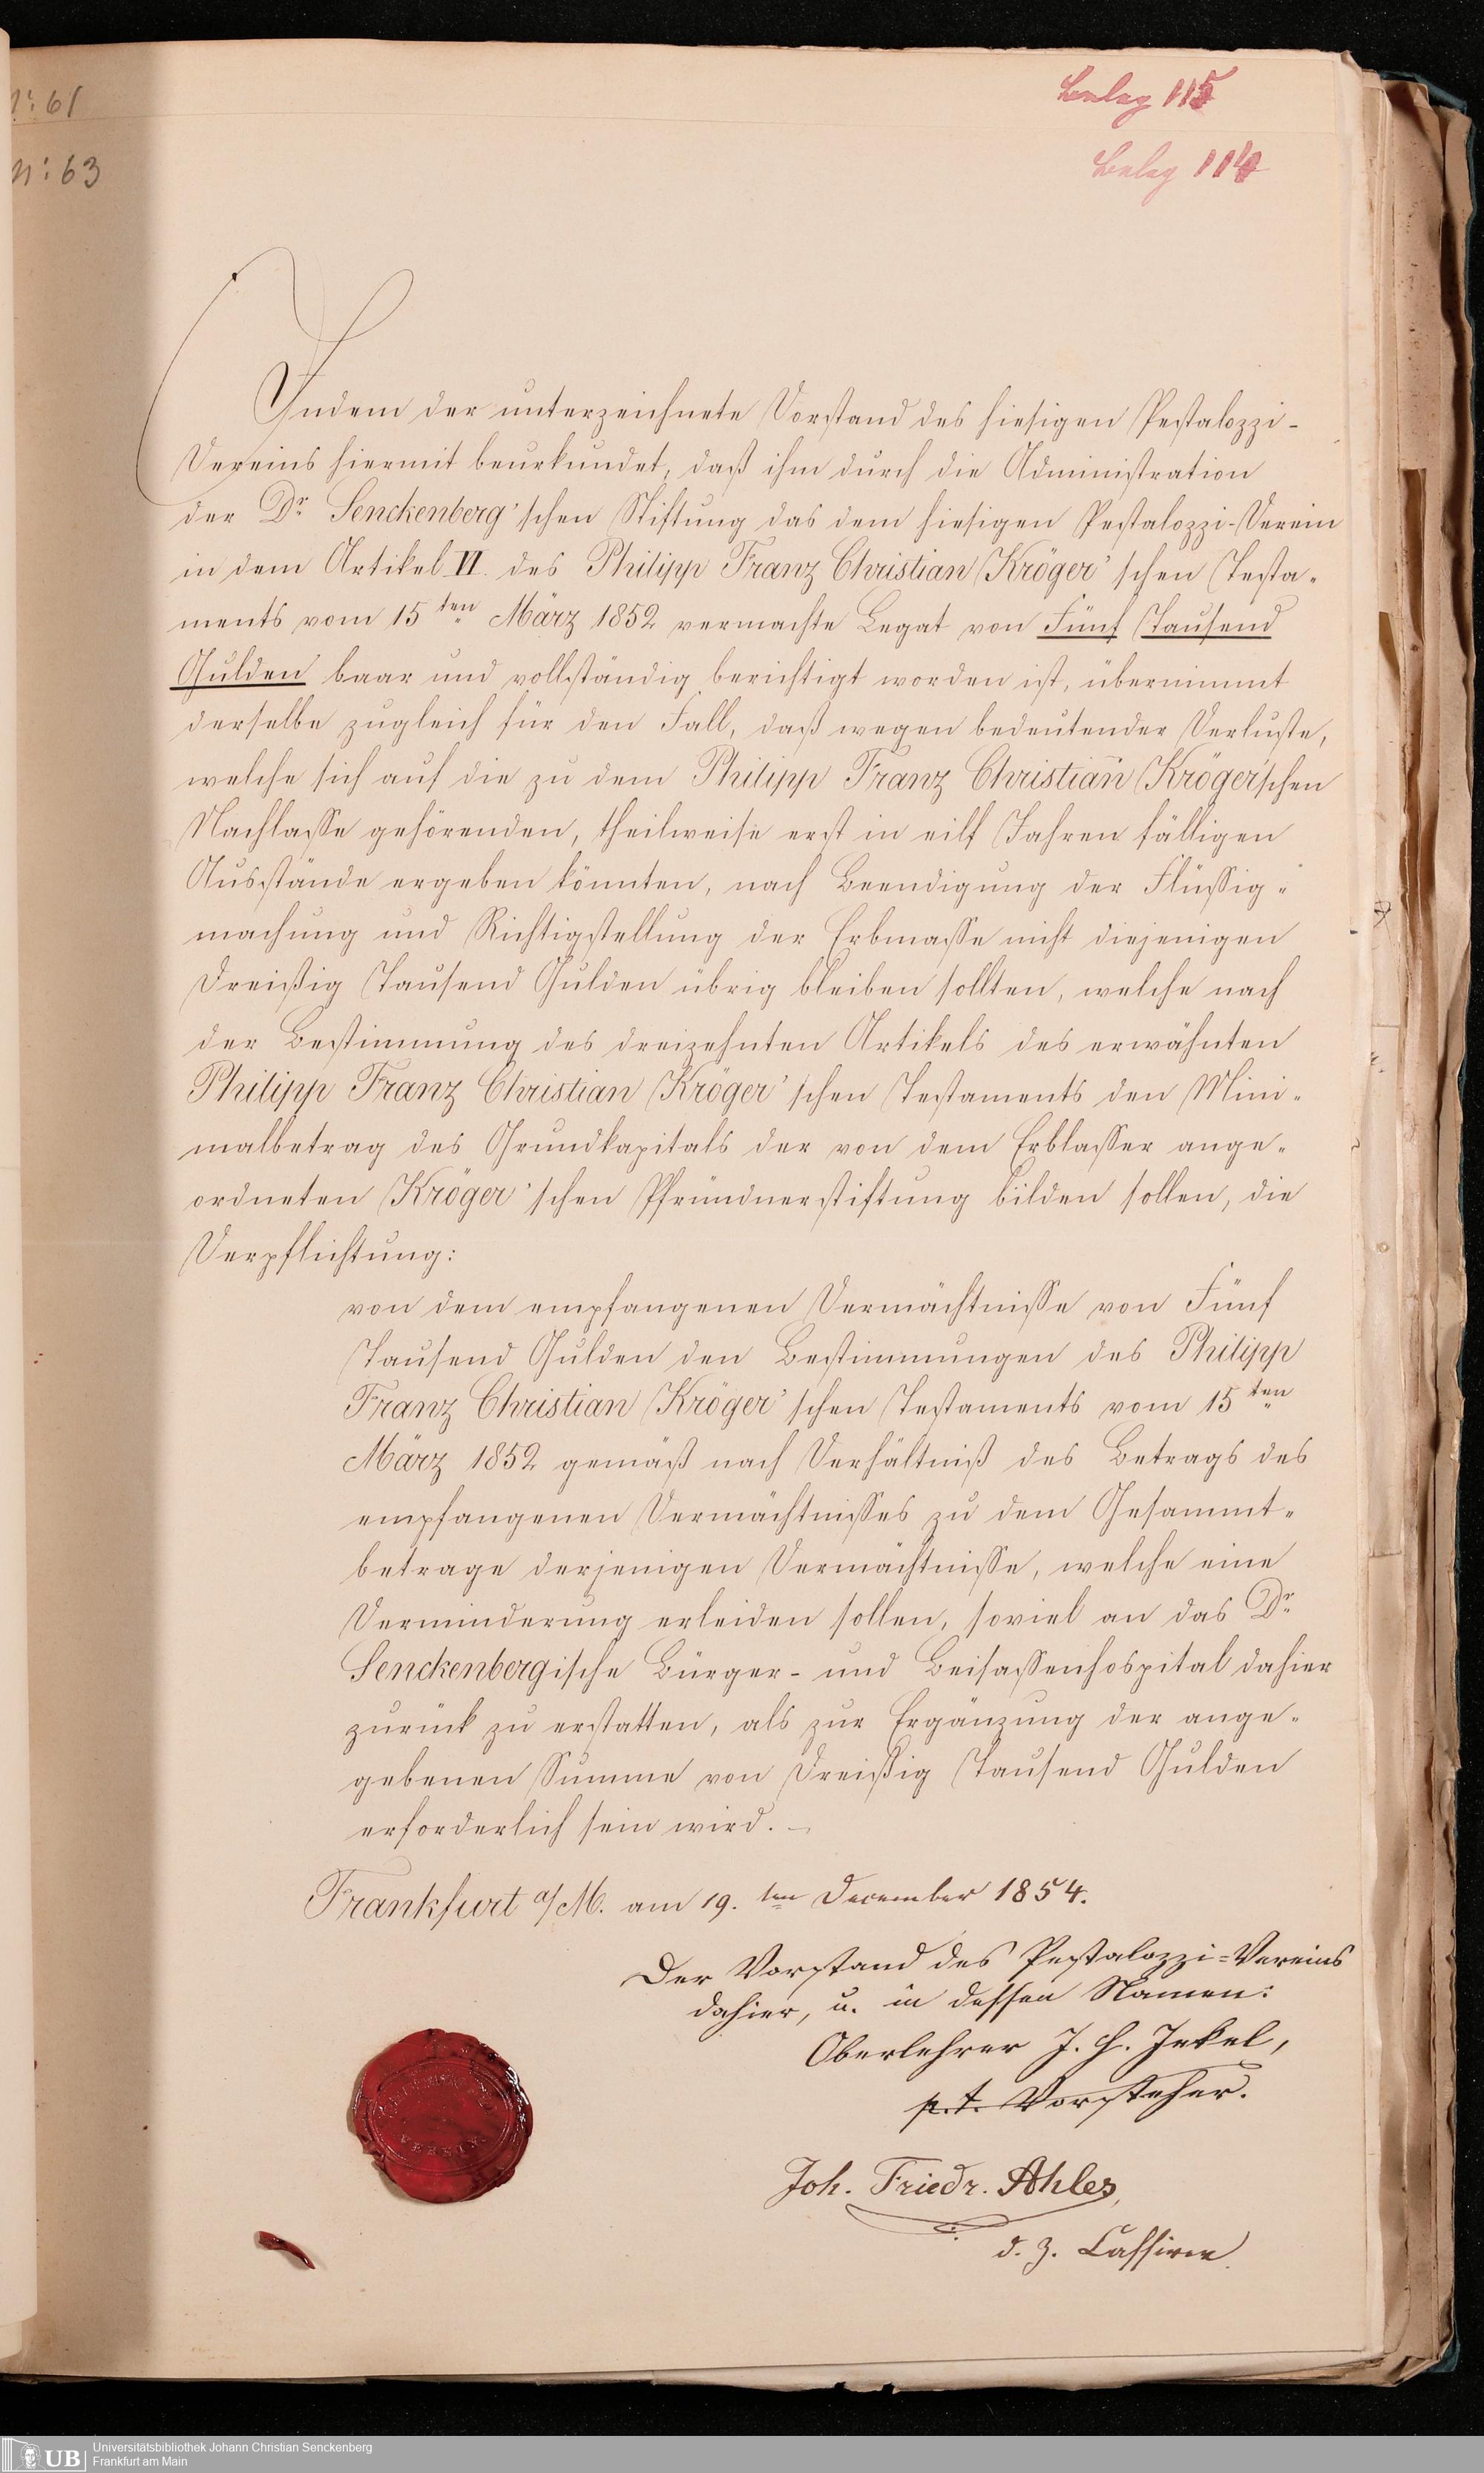 N: 61
N: 63
Beleg 115
Beleg 114
Indem der unterzeichnete Vorstand des hiesigen Pestalozzi-
Vereins hiermit beurkundet, daß ihm durch die Administration
der Dr. Senckenberg'schen Stiftung das dem hiesigen Pestalozzi-Verein
in dem Artikel VI. des Philipp Franz Christian Kröger'schen Testa-
ments vom 15ten März 1852 vermachte Legat von Fünf Tausend
Gulden baar und vollständig berichtigt worden ist, übernimmt
derselbe zugleich für den Fall, daß wegen bedeutender Verluste,
welche sich auf die zu dem Philipp Franz Christian Kröger'schen
Nachlasse gehörenden, theilweise erst in eilf Jahren fälligen
Ausstände ergeben könnten, nach Beendigung der Flüssig-
machung und Richtigstellung der Erbmasse nicht diejenigen
Dreißig Tausend Gulden übrig bleiben sollten, welche nach
der Bestimmung des dreizehnten Artikels des erwähnten
Philipp Franz Christian Kröger'schen Testaments den Mini-
malbetrag des Grundkapitals der von dem Erblasser ange-
ordneten Kröger'schen Pfründnerstiftung bilden sollen, die
Verpflichtung:
von dem empfangenen Vermächtnisse von Fünf
Tausend Gulden den Bestimmungen des Philipp
Franz Christian Kröger'schen Testaments vom 15ten
März 1852 gemäß nach Verhältniß des Betrags des
empfangenen Vermächtnisses zu dem Gesammt-
betrage derjenigen Vermächtnisse, welche eine
Verminderung erleiden sollen, soviel an das Dr.
Senckenbergische Bürger- und Beisassenhospital dahier
zurück zu erstatten, als zur Ergänzung der ange-
gebenen Summe von Dreißig Tausend Gulden
erforderlich sein wird. –
Frankfurt a/M. am 19.ten December 1854.
Der Vorstand des Pestalozzi-Vereins
dahier, u. in dessen Namen:
Oberlehrer J. H. Jekel,
p. t. Vorsteher.
Joh. Friedr. Ahles,
d. z. Cassirer
VEREIN
UB
Universitätsbibliothek Johann Christian Senckenberg
Frankfurt am Main